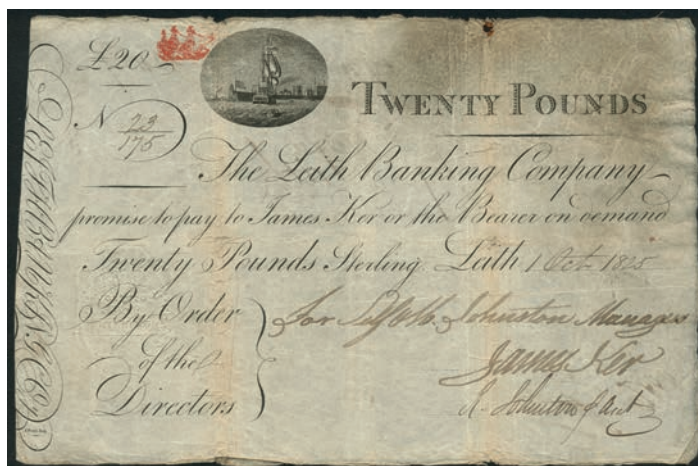 £20
TWENTY POUNDS
N 23/175
The Leith Banking Company
promise to pay to James Ker or the Bearer on demand
Twenty Pounds Sterling. Leith 1 Oct. 1825
By Order
of the
Directors
for Self & Johnston Manager
James Ker
Johnston Acct